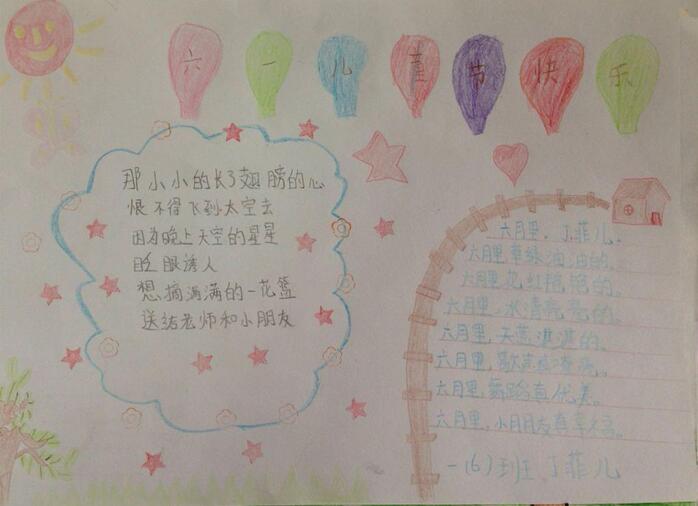 六一儿童节快乐
那小小的长了翅膀的心
恨不得飞到太空去
因为晚上天空的星星
眨眼诱人
想摘满满的一花篮
送给老师和小朋友
六月里。丁菲儿。
六月里草绿油油的。
六月里花红艳艳的。
六月里,水清亮亮的。
六月里,天蓝湛湛的。
六月里,歌声
六月里,舞蹈真优美。
六月里,小朋友真幸福。
一(6)班 丁菲儿